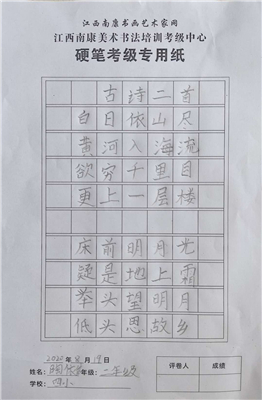 江西南康书画艺术家网
江西南康美术书法培训考级中心
硬笔考级专用纸
古诗二首
白日依山尽
黄河入海流
欲穷千里目
更上一层楼
床前明月光
疑是地上霜
举头望明月
低头思故乡
年 月 19日
姓名: 年级: 二年级
学校:
评卷人 成绩